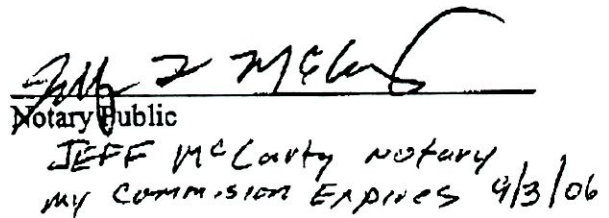 Jeff L McCarty
Notary Public
JEFF McCarty notary
my commision Expires 9/3/06